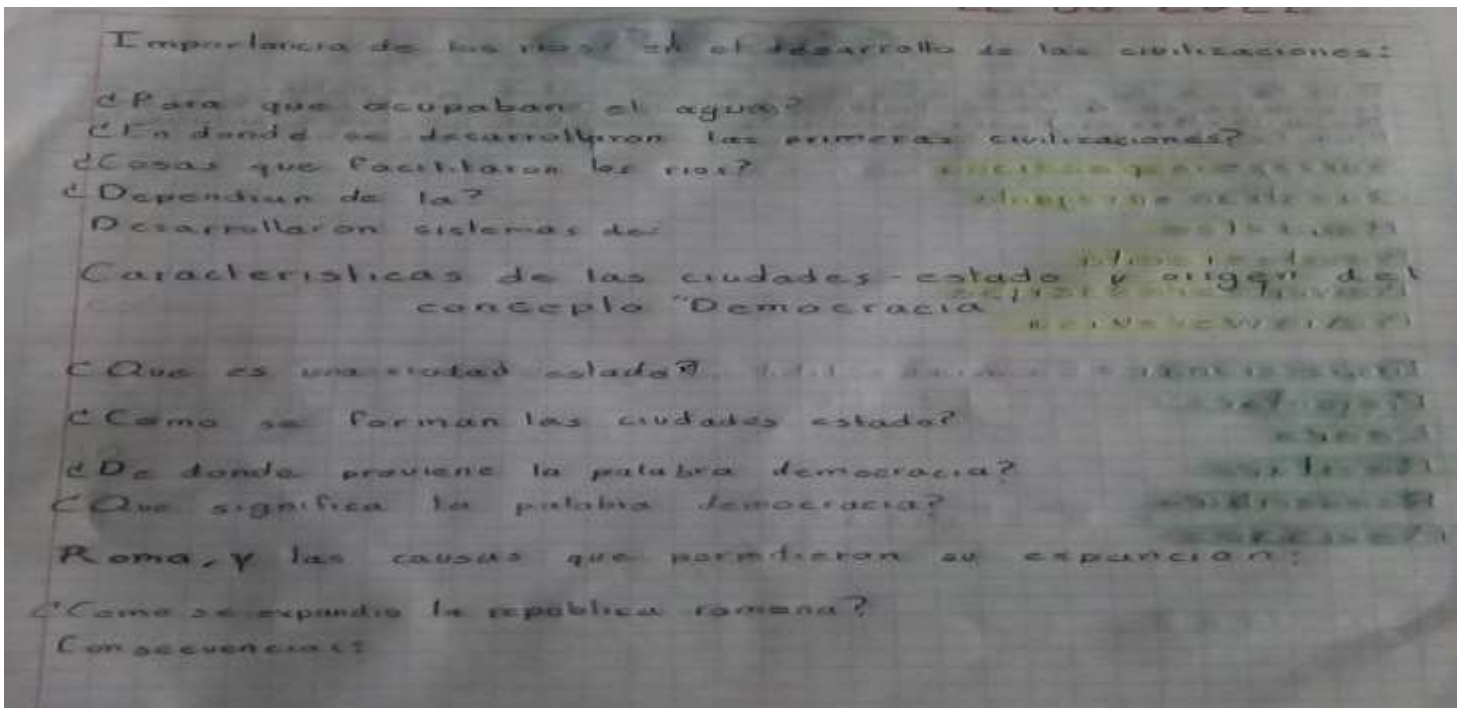 Importancia de los rios en el desarrollo de las civilizaciones:
¿Para que ocupaban el agua?
¿En donde se desarrollaron las primeras civilizaciones?
¿Cosas que facilitaron los rios?
¿Dependian de la?
Desarrollaron sistemas de:
Caracteristicas de las ciudades-estado y origen del
concepto "Democracia"
¿Que es una ciudad estado?
¿Como se forman las ciudades estado?
¿De donde proviene la palabra democracia?
¿Que significa la palabra democracia?
Roma, y las causas que permitieron su expancion:
¿Como se expandio la republica romana?
Consecuencias: